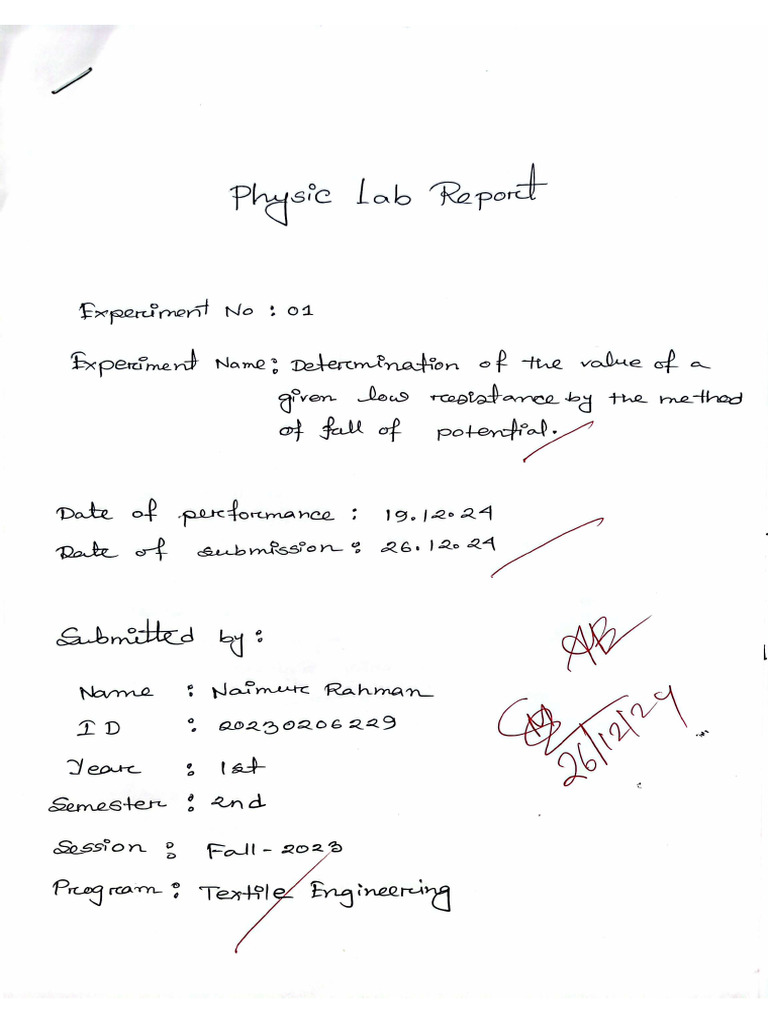 Physic Lab Report
Experiment No : 01
Experiment Name: Determination of the value of a
given low resistance by the method
of fall of potential.
Date of performance : 19.12.24
Date of submission : 26.12.24
Submitted by :
Name : Naimur Rahman
ID : 20230206229
Year : 1st
Semester : 2nd
Session : Fall - 2023
Program : Textile Engineering
AB
26/12/24